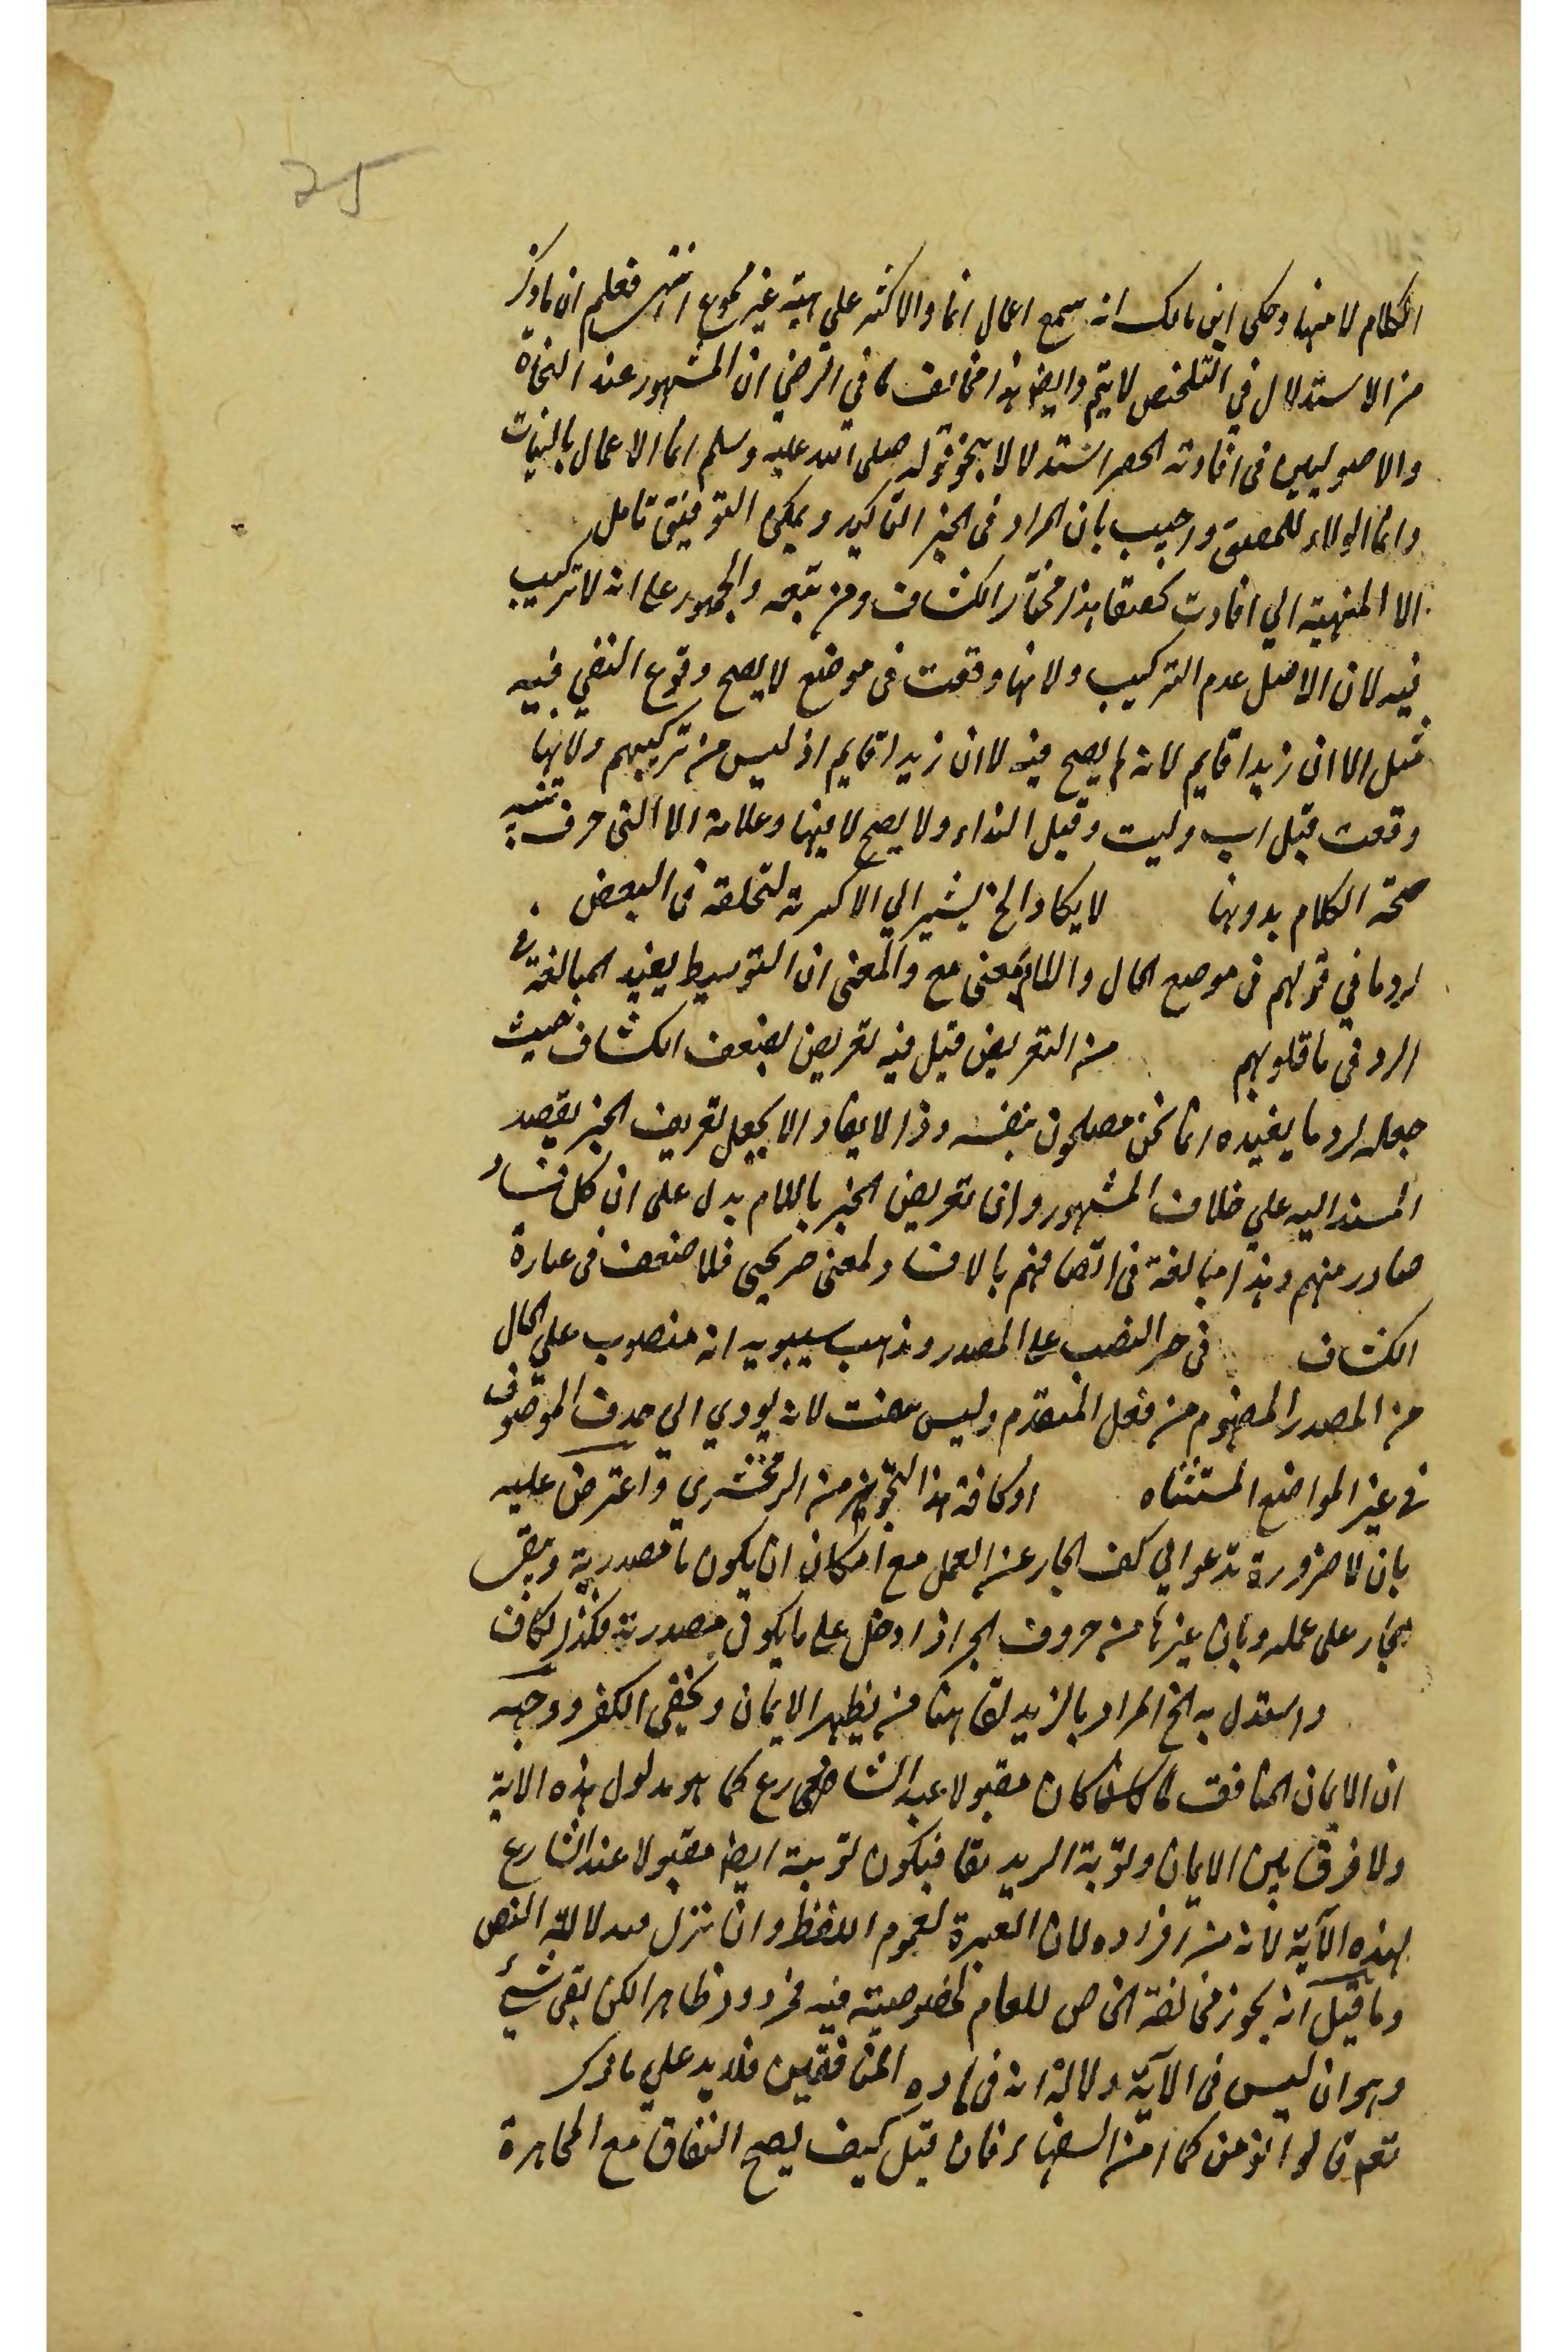 25
الكلام لا منها وحكى ابن مالك انه سمع اعمال انما والاكثر علي انه غير مسموع انتهى فعلم ان ما ذكر
من الاستدلال في التلخص لا يتم وايض هذا مخالف لما في الرضي ان المشهور عند النحاة
والاصوليين في افادته الحصر استدلالا بنحو قوله صلى الله عليه وسلم انما الاعمال بالنيات
وانما الولاء للمعتق واجيب بان المراد في الخبر التاكيد ويمكن التوفيق تامل
الا المنبهة الي افادت تحققا هذا مختار الكشاف ومن تبعه والجمهور على انه لا تركيب
فيه لان الاصل عدم التركيب ولانها وقعت في موضع لا يصح وقوع النفي فيه
مثل الا ان زيدا قايم لانه لم يصح فيه لا ان زيدا قايم اذ ليس من تركيبهم ولانها
وقعت قبل رب وليت وقبل النداء ولا يصح لا فيها وعلامة الا التي حرف تنبيه
صحة الكلام بدونها لا يكاد الخ يشير الي الاكثرية لتخلفه في البعض
لرد ما في قولهم في موضع الحال واللام بمعنى مع والمعنى ان التوسيط يفيد المبالغة في
الرد في ما قلوبهم من التعريض قيل فيه تعريض بضعف الكشاف حيث
جعله لرد ما يفيده انما نحن مصلحون بنفسه وذا لا يفاد الا بجعل تعريف الخبر بقصد
المسند اليه علي خلاف المشهور وانما تعريض الخبر باللام يدل على ان كل فساد
صادر منهم وهذا مبالغة في اتصافهم بالافساد لمعنى صريحي فلا ضعف في عبارة
الكشاف في حر النصب على المصدر ومذهب سيبويه انه منصوب علي الحال
من المصدر المفهوم من فعل المتقدم وليس صفت لانه يودي الي حذف الموصوف
في غير المواضع المستثناه او كافة هذا التجويز من الزمخشري واعترض عليه
بان لا ضرورة تدعو الي كف الجار عن العمل مع امكان ان يكون ما مصدرية ويبقى
الجار على عمله وبان غيرها من حروف الجر اذا دخل على ما يكون مصدرية فكذا الكاف
واستدل به الخ المراد بالزيديق هنا من يظهر الايمان ويخفى الكفر ووجهه
ان الايمان المنافق لما كان مقبولا عند الشارع كما هو مدلول هذه الاية
ولا فرق بين الايمان وتوبة الزيديق فيكون توبته ايض مقبولا عند الشارع
لهذه الآية لانه من افراده لان العبرة لعموم اللفظ وان نزل دلالة النص
وما قيل انه يجوز مخالفة الخاص للعام لخصوصيته فيه فمردود ظاهر لكن بقى شيئ
وهو ان ليس في الآية دلالة انه في ماده المنافقين فلا يدل علي ما ذكر
نعم قالوا انومن كما امن السفهاء فان قيل كيف يصح النفاق مع المجاهرة